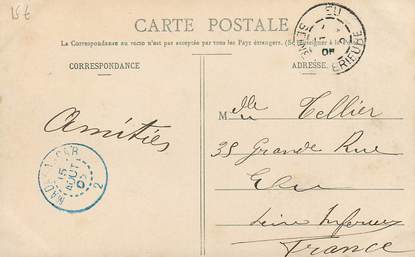 15 €
CARTE POSTALE
La Correspondance au recto n'est pas acceptée par tous les Pays étrangers. (Se renseigner à la Poste)
CORRESPONDANCE
ADRESSE
EU
SEINE INFERIEURE
Amitiés
Melle Tellier
35 Grande Rue
Eu
Seine Inférieure
France
15
AOUT
05
2